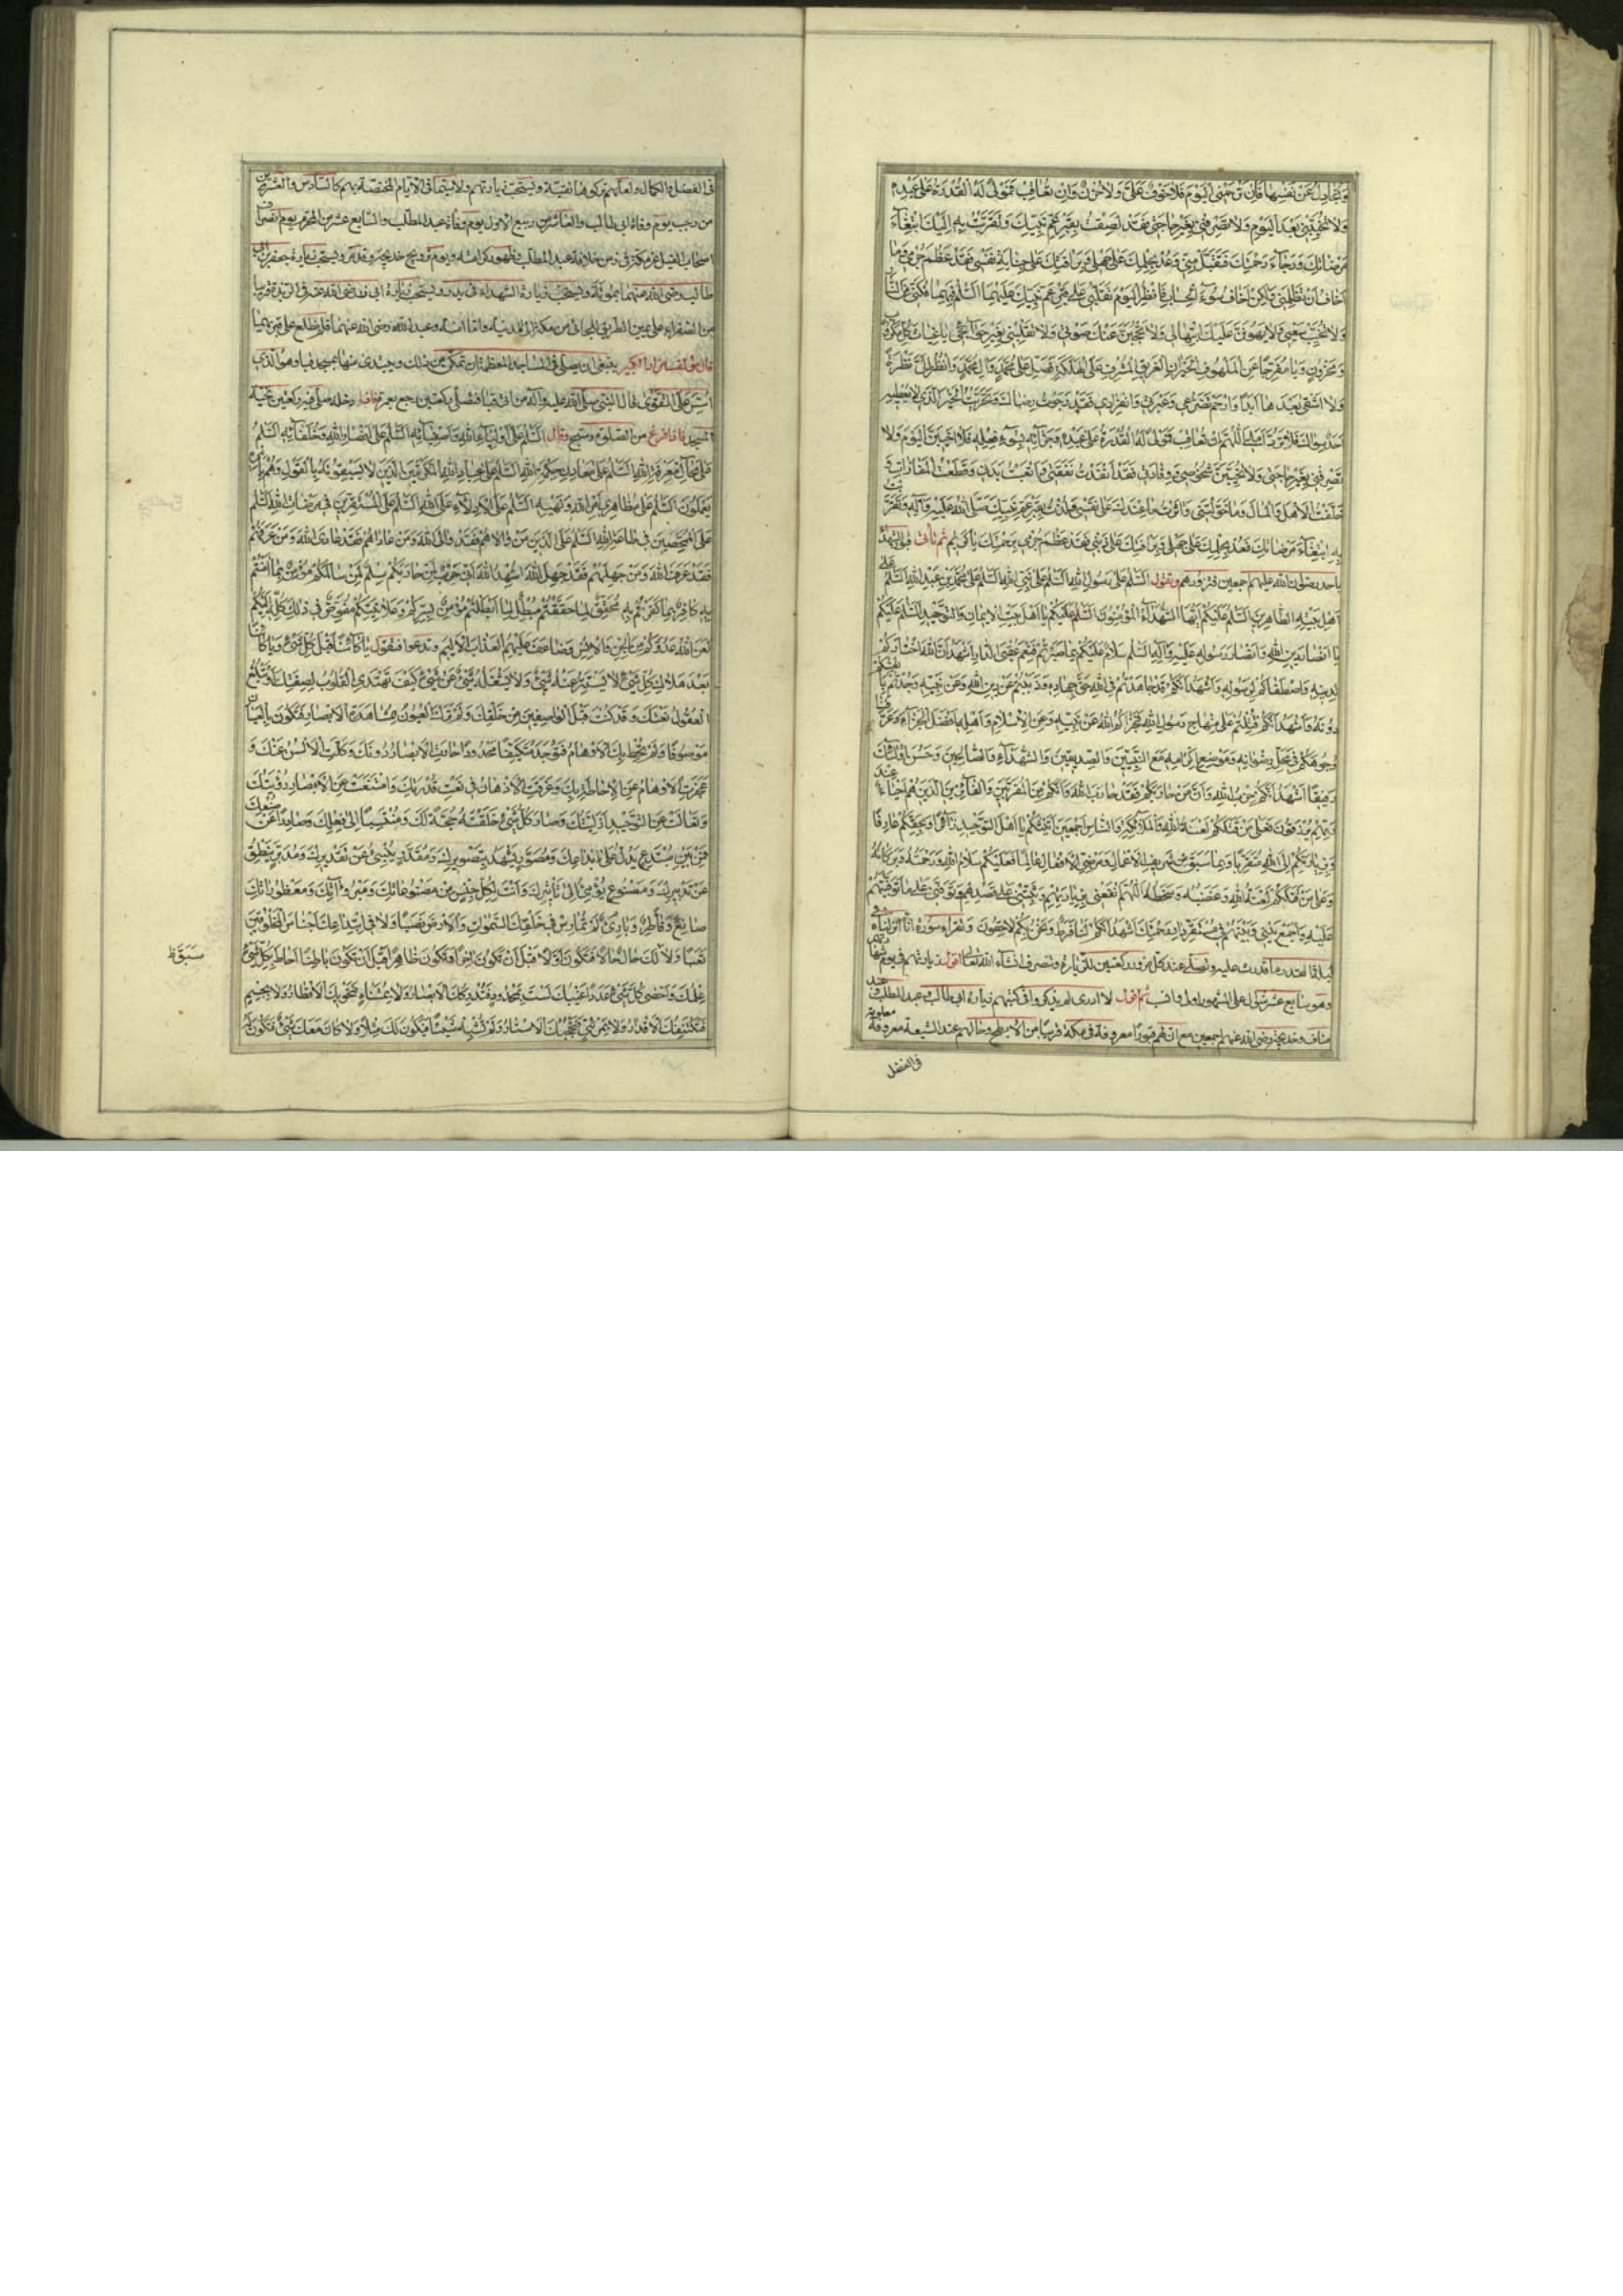 وَتُجَادِلُ عَنْ نَفْسِهَا فَاِنْ تَرْحَمْنِى الْيَوْمَ فَلَا خَوْفٌ عَلَىَّ وَلَا حُزْنٌ وَاِنْ تُعَاقِبْ فَمَوْلًى لَهُ الْقُدْرَةُ عَلَى عَبْدِهِ
وَلَا تُخَيِّبْنِى بَعْدَ الْيَوْمِ وَلَا تَصْرِفْنِى بِغَيْرِ حَاجَتِى فَقَدْ لَصِقْتُ بِقَبْرِ عَمِّ نَبِيِّكَ وَتَقَرَّبْتُ بِهِ اِلَيْكَ ابْتِغَآءَ
مَرْضَاتِكَ وَرَجَآءَ رَحْمَتِكَ فَتَقَبَّلْ مِنِّى وَعُدْ بِحِلْمِكَ عَلَى جَهْلِى وَبِرَأْفَتِكَ عَلَى جِنَايَةِ نَفْسِى فَقَدْ عَظُمَ جُرْمِى وَمَا
اَخَافُ اَنْ تَظْلِمَنِى وَلٰكِنْ اَخَافُ سُوْءَ الْحِسَابِ فَانْظُرِ الْيَوْمَ تَقَلُّبِى عَلَى قَبْرِ عَمِّ نَبِيِّكَ
وَلَا تُخَيِّبْ سَعْيِى وَلَا يَهُونَنَّ عَلَيْكَ ابْتِهَالِى وَلَا تَحْجُبَنَّ عَنْكَ صَوْتِى وَلَا تَقْلِبْنِى بِغَيْرِ حَوَآئِجِى يَا غِيَاثَ كُلِّ مَكْرُوبٍ
وَمَحْزُونٍ وَيَا مُفَرِّجًا عَنِ الْمَلْهُوفِ الْحَيْرَانِ الْغَرِيقِ الْمُشْرِفِ عَلَى الْهَلَكَةِ فَصَلِّ عَلَى مُحَمَّدٍ وَآلِ مُحَمَّدٍ وَانْظُرْ اِلَىَّ نَظْرَةً
لَا اَشْقَى بَعْدَهَا اَبَدًا وَارْحَمْ تَضَرُّعِى وَعَبْرَتِى وَانْفِرَادِى فَقَدْ رَجَوْتُ رِضَاكَ وَتَحَرَّيْتُ الْخَيْرَ الَّذِى لَا يُعْطِيهِ
اَحَدٌ سِوَاكَ فَلَا تَرُدَّ اَمَلِى اَللّٰهُمَّ اِنْ تُعَاقِبْ فَمَوْلًى لَهُ الْقُدْرَةُ عَلَى عَبْدِهِ وَجَزَآئِهِ بِسُوْءِ فِعْلِهِ فَلَا اَخِيبَنَّ الْيَوْمَ وَلَا
تَصْرِفْنِى بِغَيْرِ حَاجَتِى وَلَا تُخَيِّبَنَّ شُخُوصِى وَوِفَادَتِى فَقَدْ اَنْفَدْتُ نَفَقَتِى وَاَتْعَبْتُ بَدَنِى وَقَطَعْتُ الْمَفَازَاتِ وَ
خَلَّفْتُ الْاَهْلَ وَالْمَالَ وَمَا خَوَّلْتَنِى وَآثَرْتُ مَا عِنْدَكَ عَلَى نَفْسِى وَلُذْتُ بِقَبْرِ عَمِّ نَبِيِّكَ صَلَّى اللّٰهُ عَلَيْهِ وَآلِهِ وَتَقَرَّبْتُ
بِهِ ابْتِغَآءَ مَرْضَاتِكَ فَعُدْ بِحِلْمِكَ عَلَى جَهْلِى وَبِرَأْفَتِكَ عَلَى ذَنْبِى فَقَدْ عَظُمَ جُرْمِى بِرَحْمَتِكَ يَا كَرِيمُ ثم تأتى قبور الشهدآء
باحد رضوان الله عليهم اجمعين فتزورهم وتقول السَّلٰمُ عَلَى رَسُولِ اللّٰهِ اَلسَّلٰمُ عَلَى نَبِىِّ اللّٰهِ اَلسَّلٰمُ عَلَى مُحَمَّدِ بْنِ عَبْدِ اللّٰهِ اَلسَّلٰمُ عَلَى
اَهْلِ بَيْتِهِ الطَّاهِرِينَ اَلسَّلٰمُ عَلَيْكُمْ اَيُّهَا الشُّهَدَآءُ الْمُؤْمِنُونَ اَلسَّلٰمُ عَلَيْكُمْ يَا اَهْلَ بَيْتِ الْاِيمَانِ وَالتَّوْحِيدِ اَلسَّلٰمُ عَلَيْكُمْ
يَا اَنْصَارَ دِينِ اللّٰهِ وَاَنْصَارَ رَسُولِهِ عَلَيْهِ وَآلِهِ السَّلٰمُ سَلَامٌ عَلَيْكُمْ بِمَا صَبَرْتُمْ فَنِعْمَ عُقْبَى الدَّارِ اَشْهَدُ اَنَّ اللّٰهَ اخْتَارَكُمْ
لِدِينِهِ وَاصْطَفَاكُمْ لِرَسُولِهِ وَاَشْهَدُ اَنَّكُمْ قَدْ جَاهَدْتُمْ فِى اللّٰهِ حَقَّ جِهَادِهِ وَذَبَبْتُمْ عَنْ دِينِ اللّٰهِ وَعَنْ نَبِيِّهِ وَجُدْتُمْ بِاَنْفُسِكُمْ
دُونَهُ وَاَشْهَدُ اَنَّكُمْ قُتِلْتُمْ عَلَى مِنْهَاجِ رَسُولِ اللّٰهِ فَجَزَاكُمُ اللّٰهُ عَنْ نَبِيِّهِ وَعَنِ الْاِسْلَامِ وَاَهْلِهِ اَفْضَلَ الْجَزَآءِ وَعَرَّفَنَا
وُجُوهَكُمْ فِى مَحَلِّ رِضْوَانِهِ وَمَوْضِعِ اِكْرَامِهِ مَعَ النَّبِيِّينَ وَالصِّدِّيقِينَ وَالشُّهَدَآءِ وَالصَّالِحِينَ وَحَسُنَ اُولٰئِكَ
رَفِيقًا اَشْهَدُ اَنَّكُمْ حِزْبُ اللّٰهِ وَاَنَّ مَنْ حَارَبَكُمْ فَقَدْ حَارَبَ اللّٰهَ وَاَنَّكُمْ مِنَ الْمُقَرَّبِينَ وَالْفَآئِزِينَ الَّذِينَ هُمْ اَحْيَآءٌ عِنْدَ
رَبِّهِمْ يُرْزَقُونَ فَعَلَى مَنْ قَتَلَكُمْ لَعْنَةُ اللّٰهِ وَالْمَلٰئِكَةِ وَالنَّاسِ اَجْمَعِينَ اَتَيْتُكُمْ يَا اَهْلَ التَّوْحِيدِ زَآئِرًا وَبِحَقِّكُمْ عَارِفًا
وَبِزِيَارَتِكُمْ اِلَى اللّٰهِ مُتَقَرِّبًا وَبِمَا سَبَقَ مِنْ شَرِيفِ الْاَعْمَالِ وَمَرْضِىِّ الْاَفْعَالِ عَالِمًا فَعَلَيْكُمْ سَلَامُ اللّٰهِ وَرَحْمَتُهُ وَبَرَكَاتُهُ
وَعَلَى مَنْ قَتَلَكُمْ لَعْنَةُ اللّٰهِ وَغَضَبُهُ وَسَخَطُهُ اَللّٰهُمَّ انْفَعْنِى بِزِيَارَتِهِمْ وَثَبِّتْنِى عَلَى قَصْدِهِمْ وَتَوَفَّنِى عَلَى مَا تَوَفَّيْتَهُمْ
عَلَيْهِ وَاجْمَعْ بَيْنِى وَبَيْنَهُمْ فِى مُسْتَقَرِّ دَارِ رَحْمَتِكَ اَشْهَدُ اَنَّكُمْ لَنَا فَرَطٌ وَنَحْنُ بِكُمْ لَاحِقُونَ وتقراء سورة انا انزلناه فى
ليلة القدر ما قدرت عليه وتصلى عند كل مزور ركعتين للزيارة وتنصرف انشآء الله تعالى
وهو سابع عشر شوال على المشهور اولى وانسب ثم اقول لا ادرى لم يذكروا فى كتبهم زيارة ابى طالب وعبد المطلب وعبد
مناف وخديجة رضى الله عنهم اجمعين مع ان لهم قبورا معروفة فى مكة قريبا من الابطح وحالهم عند الشيعة معروفة
فى الفضل
فى الفضل والكمال ولعلهم تركوها تقية ويستحب زيارتهم ولا سيما فى الايام المختصة بهم كالسادس والعشرين
من رجب يوم وفاة ابى طالب والعاشر من ربيع الاول يوم وفاة عبد المطلب والسابع عشر من المحرم يوم انصراف
اصحاب الفيل عن مكة ويوم تزويج خديجة ويستحب زيارة جعفر بن ابى
طالب رضى الله عنهما بموتة ويستحب زيارة الشهداء فى بدر ويستحب زيارة ابى ذر رضى الله عنه فى الربذة قريبا
من الصفراء على يمين الطريق للجائى من مكة الى المدينة
قال مؤلف المزار الكبير ينبغى ان يصلى فى المساجد المعظمة ان تمكن من ذلك ويبتدى منها بمسجد قبا وهو الذى
اسس على التقوى قال النبى صلى الله عليه وآله من اتى قبا فصلى ركعتين رجع بعمرة فاذا دخله صلى فيه ركعتين تحية
المسجد فاذا فرغ من الصلوة وسبح وقال السَّلٰمُ عَلَى اَوْلِيَآءِ اللّٰهِ وَاَصْفِيَآئِهِ اَلسَّلٰمُ عَلَى اَنْصَارِ اللّٰهِ وَخُلَفَآئِهِ اَلسَّلٰمُ
عَلَى مَحَالِّ مَعْرِفَةِ اللّٰهِ اَلسَّلٰمُ عَلَى مَعَادِنِ حِكْمَةِ اللّٰهِ اَلسَّلٰمُ عَلَى عِبَادِ اللّٰهِ الْمُكْرَمِينَ الَّذِينَ لَا يَسْبِقُونَهُ بِالْقَوْلِ وَهُمْ بِاَمْرِهِ
يَعْمَلُونَ اَلسَّلٰمُ عَلَى مَظَاهِرِى اَمْرِ اللّٰهِ وَنَهْيِهِ اَلسَّلٰمُ عَلَى الْاَدِلَّآءِ عَلَى اللّٰهِ اَلسَّلٰمُ عَلَى الْمُسْتَقِرِّينَ فِى مَرْضَاتِ اللّٰهِ اَلسَّلٰمُ
عَلَى الْمُمَحَّصِينَ فِى طَاعَةِ اللّٰهِ اَلسَّلٰمُ عَلَى الَّذِينَ مَنْ وَالَاهُمْ فَقَدْ وَالَى اللّٰهَ وَمَنْ عَادَاهُمْ فَقَدْ عَادَى اللّٰهَ وَمَنْ عَرَفَهُمْ
فَقَدْ عَرَفَ اللّٰهَ وَمَنْ جَهِلَهُمْ فَقَدْ جَهِلَ اللّٰهَ اُشْهِدُ اللّٰهَ اَنِّى حَرْبٌ لِمَنْ حَارَبَكُمْ سِلْمٌ لِمَنْ سَالَمَكُمْ مُؤْمِنٌ بِمَا آمَنْتُمْ
بِهِ كَافِرٌ بِمَا كَفَرْتُمْ بِهِ مُحَقِّقٌ لِمَا حَقَّقْتُمْ مُبْطِلٌ لِمَا اَبْطَلْتُمْ مُؤْمِنٌ بِسِرِّكُمْ وَعَلَانِيَتِكُمْ مُفَوِّضٌ فِى ذٰلِكَ كُلِّهِ اِلَيْكُمْ
لَعَنَ اللّٰهُ عَدُوَّكُمْ مِنَ الْجِنِّ وَالْاِنْسِ وَضَاعَفَ عَلَيْهِمُ الْعَذَابَ الْاَلِيمَ وتدعو افتقول يَا كَآئِنًا قَبْلَ كُلِّ شَىْءٍ وَيَا كَآئِنًا
بَعْدَ هَلَاكِ كُلِّ شَىْءٍ لَا يَسْتَتِرُ عَنْهُ شَىْءٌ وَلَا يَشْغَلُهُ شَىْءٌ عَنْ شَىْءٍ كَيْفَ تَهْتَدِى الْقُلُوبُ لِصِفَتِكَ اَوْ تَبْلُغُ
الْعُقُولُ نَعْتَكَ وَقَدْ كُنْتَ قَبْلَ الْوَاصِفِينَ مِنْ خَلْقِكَ وَلَمْ تَرَكَ الْعُيُونُ بِمُشَاهَدَةِ الْاَبْصَارِ فَتَكُونَ بِالْعَيَانِ
مَوْصُوفًا وَلَمْ تُحِطْ بِكَ الْاَوْهَامُ فَتُوجَدَ مُتَكَيِّفًا مَحْدُودًا حَارَتِ الْاَبْصَارُ دُونَكَ وَكَلَّتِ الْاَلْسُنُ عَنْكَ وَ
عَجَزَتِ الْاَوْهَامُ عَنِ الْاِحَاطَةِ بِكَ وَغَرِقَتِ الْاَذْهَانُ فِى نَعْتِ قُدْرَتِكَ وَامْتَنَعَتْ عَنِ الْاَبْصَارِ رُؤْيَتُكَ
وَتَعَالَتْ عَنِ التَّوْحِيدِ اَزَلِيَّتُكَ وَصَارَ كُلُّ شَىْءٍ خَلَقْتَهُ حُجَّةً لَكَ وَمُنْتَسِبًا اِلَى فِعْلِكَ وَصَادِرًا عَنْ صُنْعِكَ
فَمِنْ بَيْنِ مُبْتَدَعٍ يَدُلُّ عَلَى اِبْدَاعِكَ وَمُصَوَّرٍ يَشْهَدُ بِتَصْوِيرِكَ وَمُقَدَّرٍ يُنْبِئُ عَنْ تَقْدِيرِكَ وَمُدَبَّرٍ يَنْطِقُ
عَنْ تَدْبِيرِكَ وَمَصْنُوعٍ يُؤْمِى اِلَى تَأْثِيرِكَ وَاَنْتَ لِكُلِّ جِنْسٍ مِنْ مَصْنُوعَاتِكَ وَمَبْرُوْآتِكَ وَمَفْطُورَاتِكَ
صَانِعٌ وَفَاطِرٌ وَبَارِئٌ لَمْ تُمَارِسْ فِى خَلْقِكَ السَّمٰوَاتِ وَالْاَرْضَ نَصَبًا وَلَا فِى ابْتِدَاعِكَ اَجْنَاسَ الْمَخْلُوقِينَ
تَعَبًا وَلَا لَكَ حَالٌ حَالًا فَتَكُونَ اَوَّلًا قَبْلَ اَنْ تَكُونَ آخِرًا وَتَكُونَ ظَاهِرًا قَبْلَ اَنْ تَكُونَ بَاطِنًا اَحَاطَ بِكُلِّ شَىْءٍ
عِلْمُكَ وَاَحْصَى كُلَّ شَىْءٍ عَدَدًا غَيْبُكَ لَسْتَ بِمَحْدُودٍ فَتُدْرِكَكَ الْاَبْصَارُ وَلَا بِمُتَنَاهٍ فَتَحْوِيَكَ الْاَنْظَارُ وَلَا بِجِسْمٍ
فَتَكْتَنِفَكَ الْاَقْدَارُ وَلَا بِمَرْئِىٍّ فَتَحْجُبَكَ الْاَسْتَارُ وَلَمْ تُشْبِهْ شَيْئًا فَيَكُونَ لَكَ مِثْلًا وَلَا كَانَ مَعَكَ شَىْءٌ فَتَكُونَ لَهُ
سَبَقَ ظ